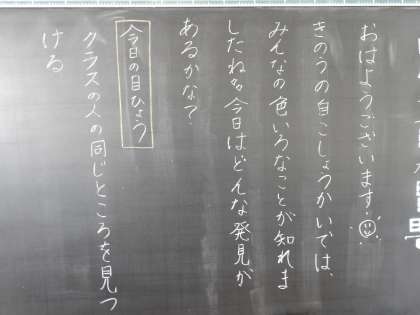 おはようございます!
きのうの自こしょうかいでは、
みんなの色いろなことが知れま
したね。今日はどんな発見が
あるかな?
今日の目ひょう
クラスの人の同じところを見つ
ける